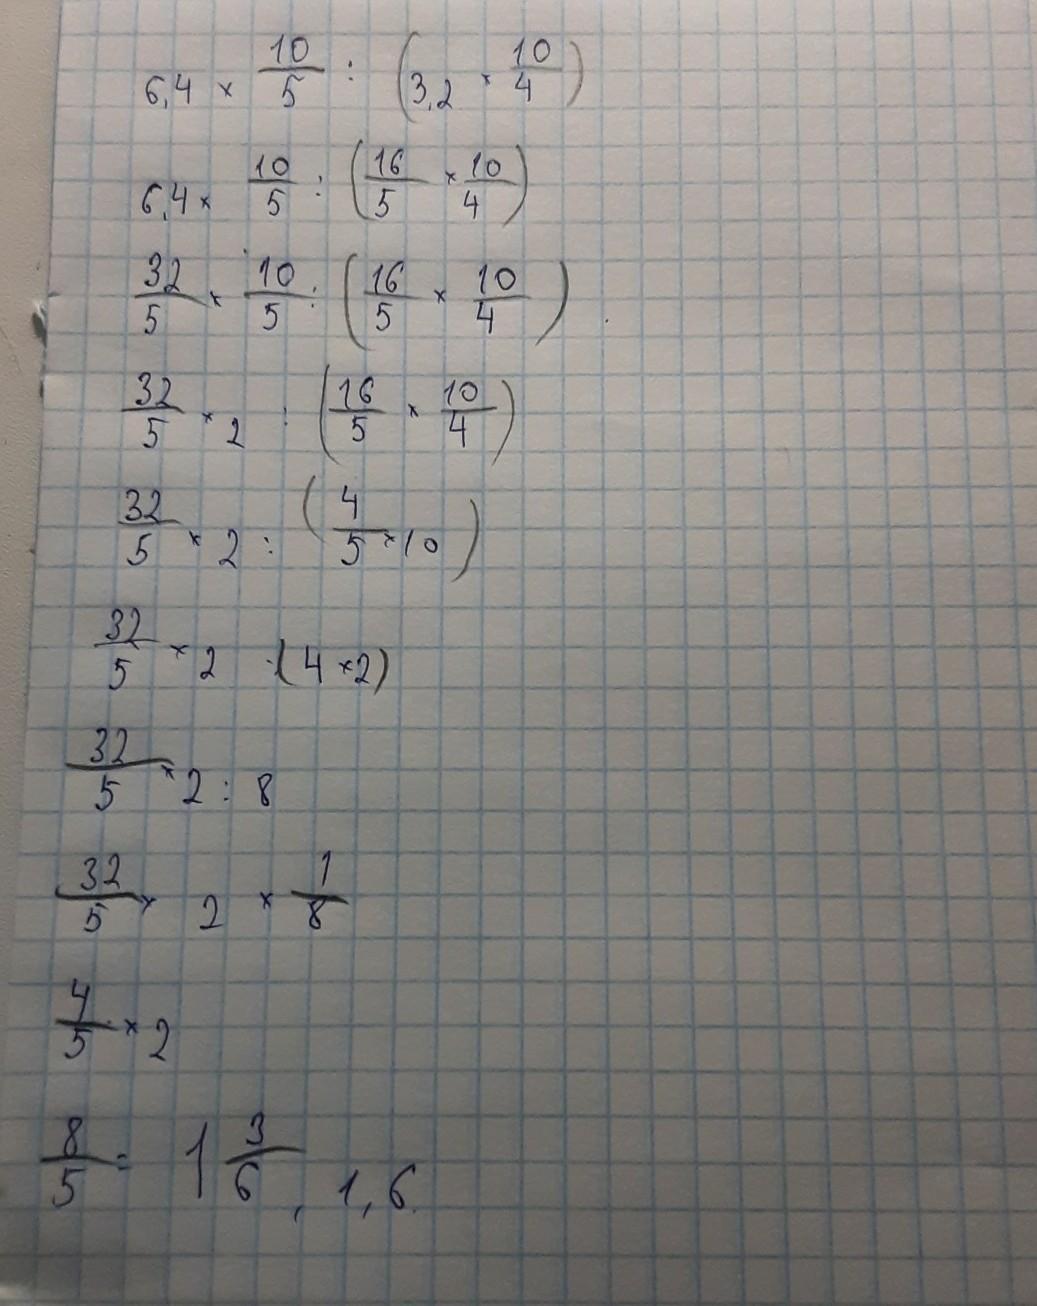 6,4 × 10/5 : (3,2 × 10/4)
6,4 × 10/5 : (16/5 × 10/4)
32/5 × 10/5 : (16/5 × 10/4)
32/5 × 2 : (16/5 × 10/4)
32/5 × 2 : (4/5 × 10)
32/5 × 2 :(4 × 2)
32/5 × 2 : 8
32/5 × 2 × 1/8
4/5 × 2
8/5 = 1 3/6, 1,6